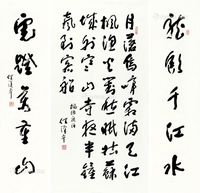 千江水
月落烏啼霜滿天江
楓漁火對愁眠姑蘇
城外寒山寺夜半鐘
聲到客船
楓橋夜泊
萬重山